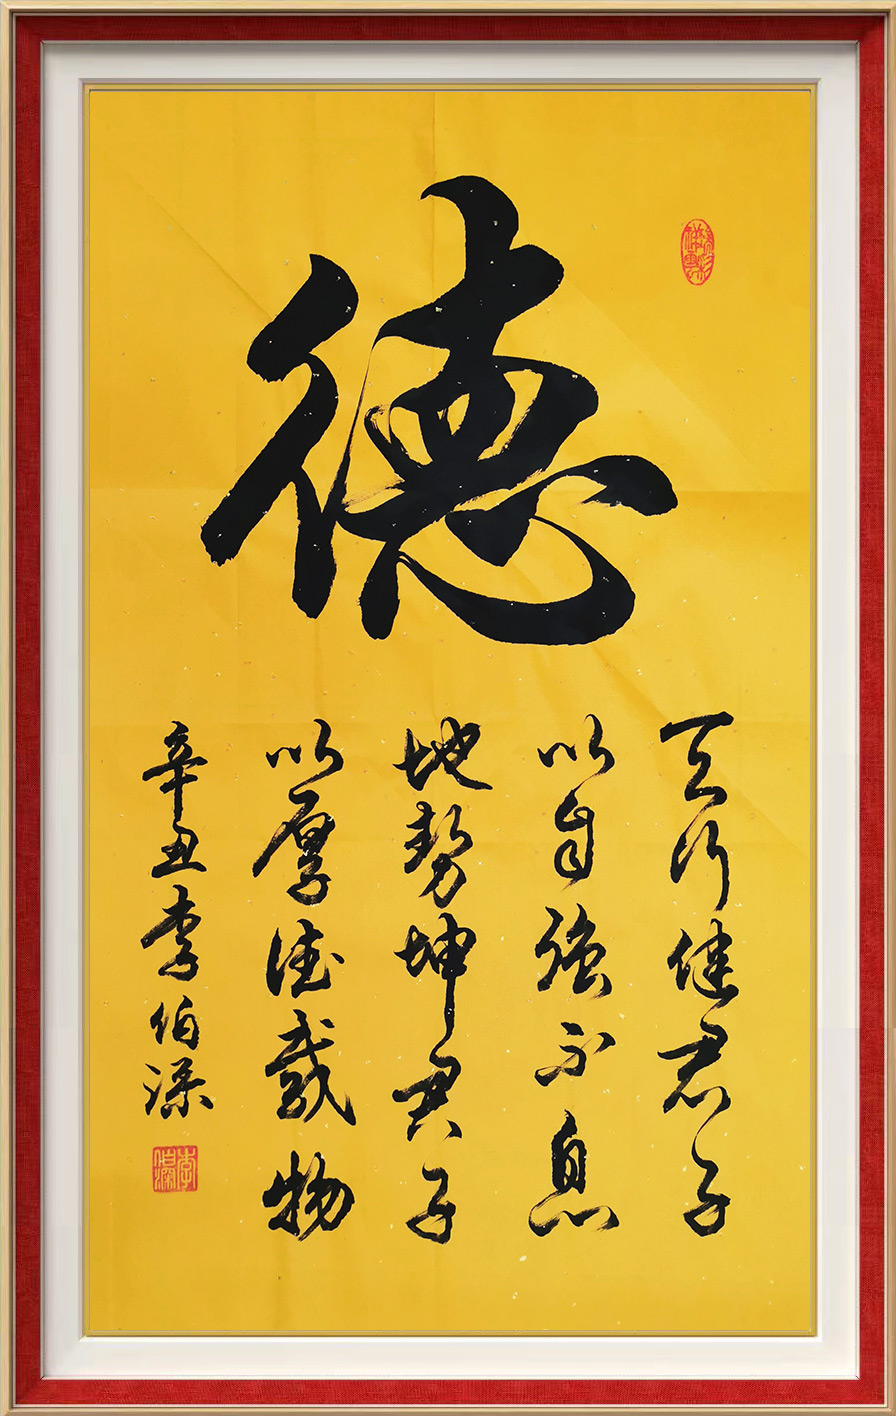 德
天行健君子
以自强不息
地势坤君子
以厚德载物
辛丑李伯深